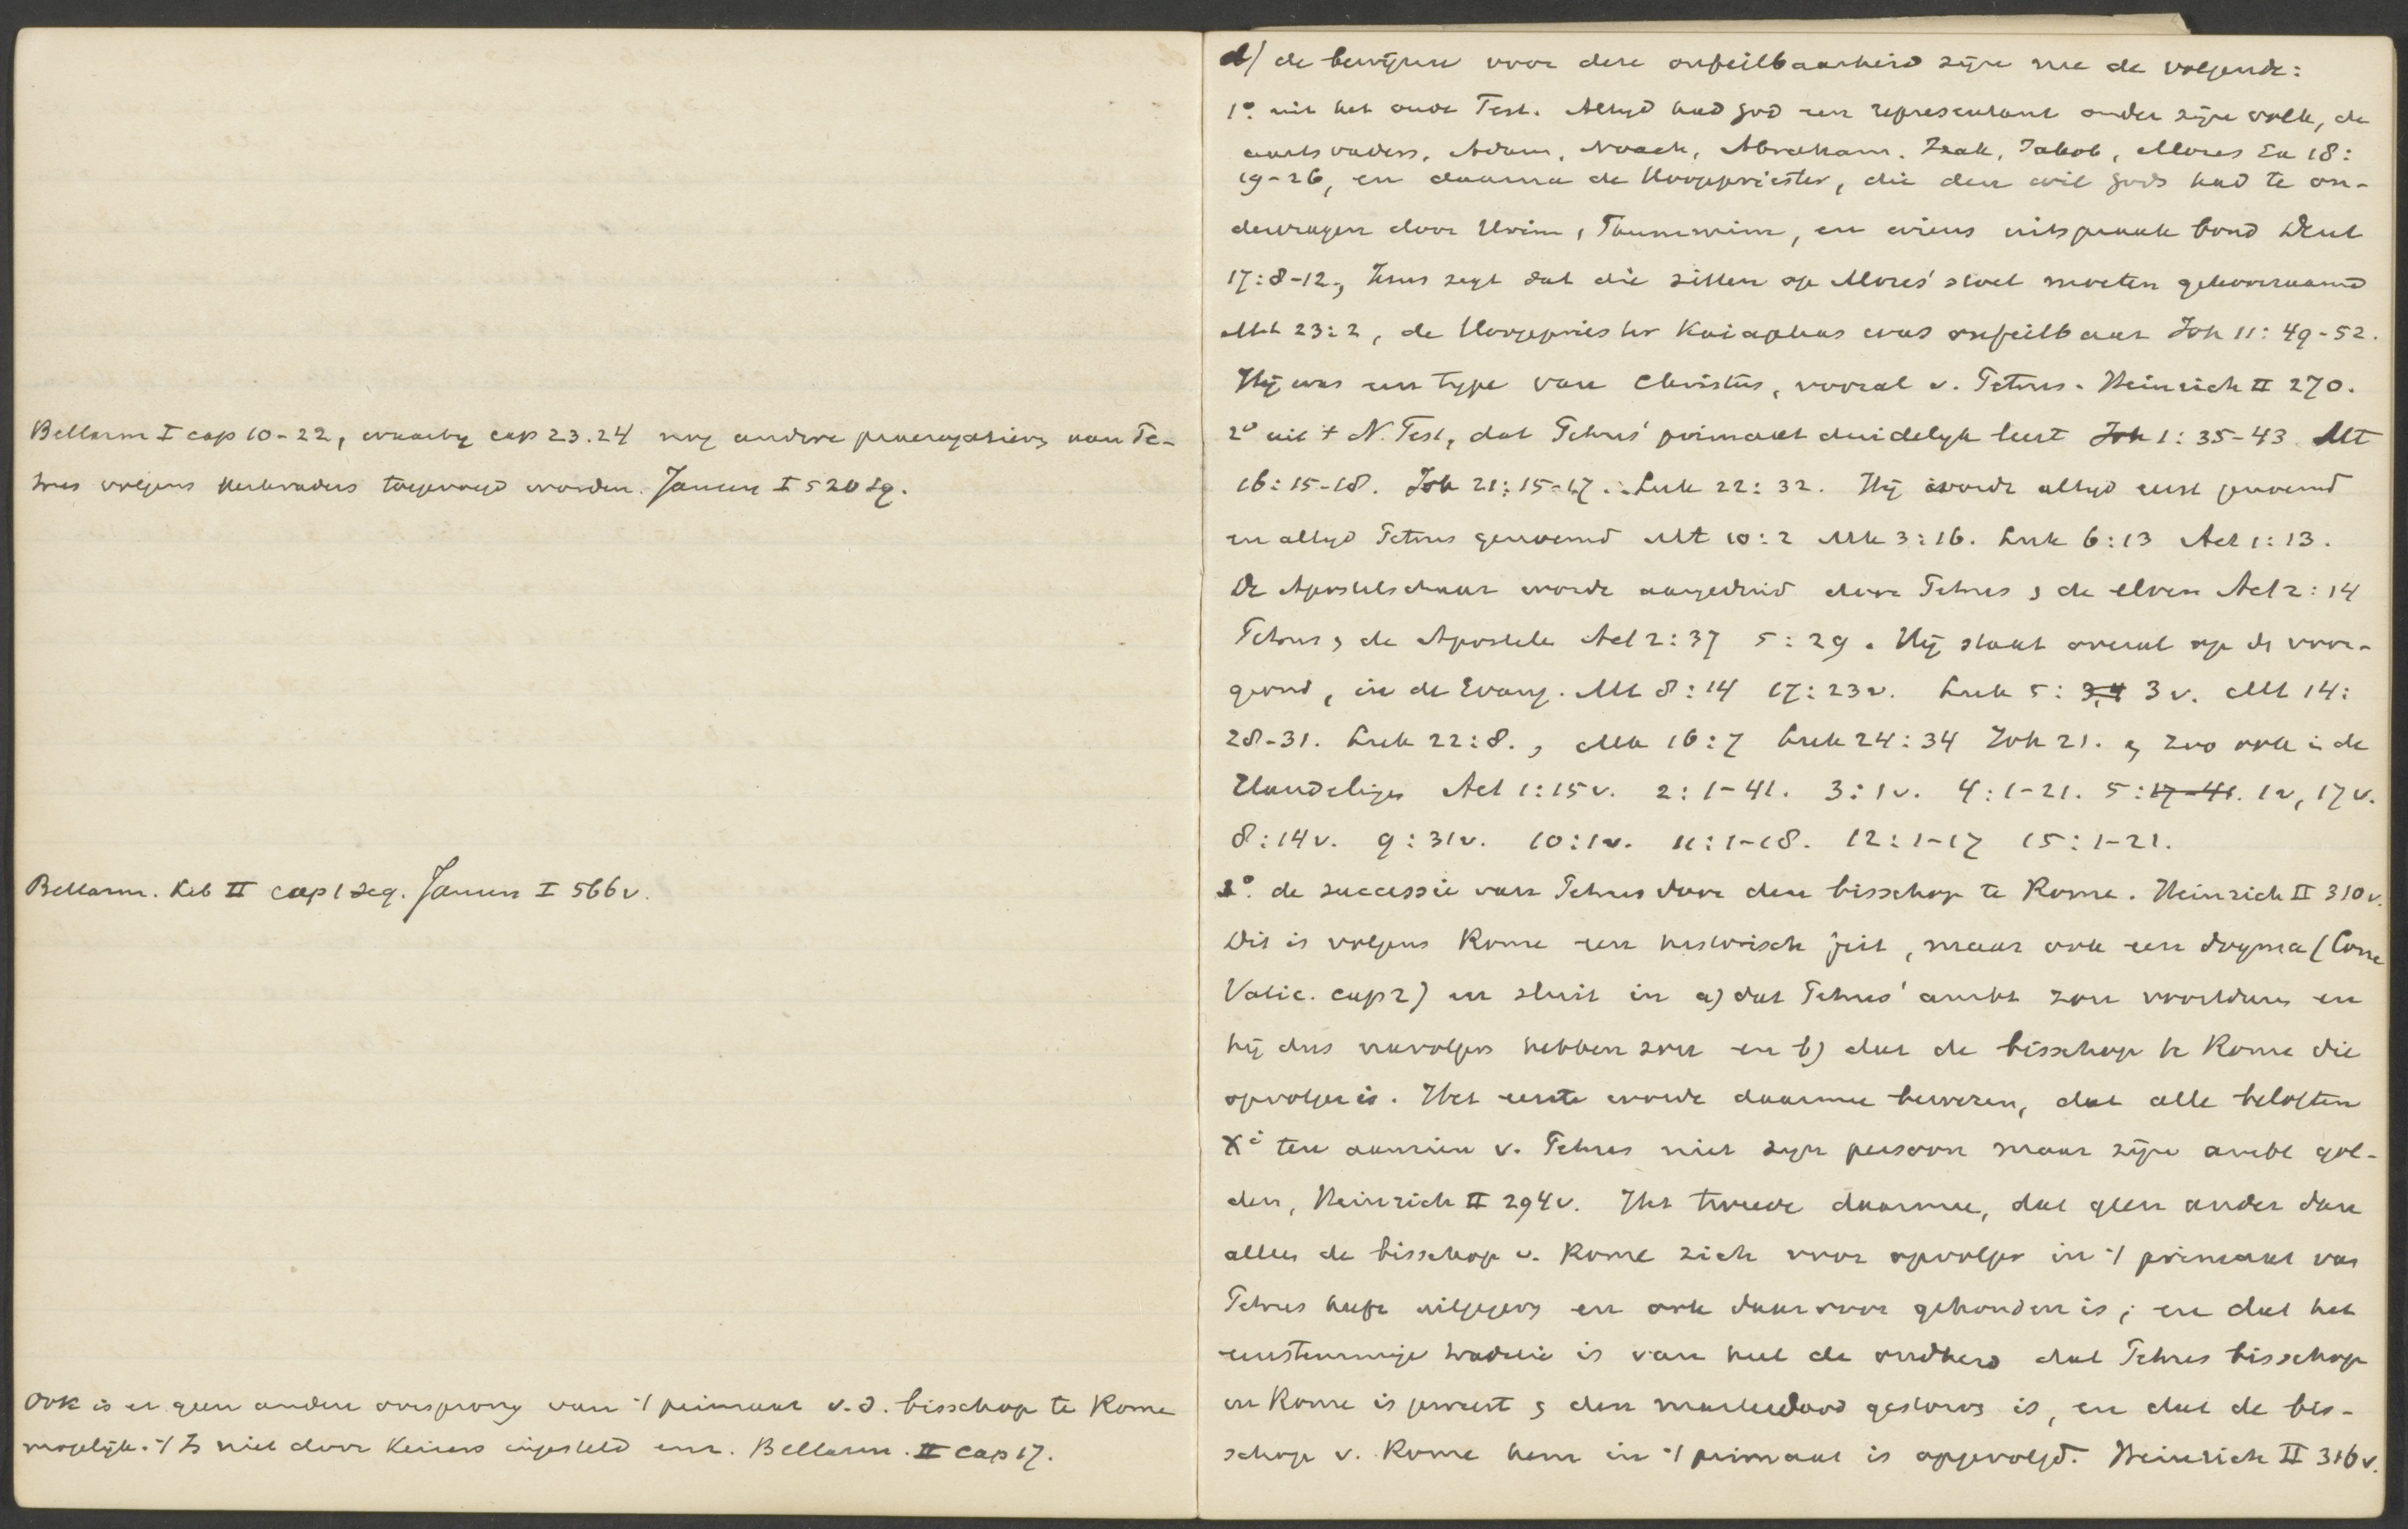 Bellarm I cap 10-22, waarbij cap 23.24 nog andere praerogatieven van Pe-
trus volgens kerkvaders toegevoegd worden. Jansen I 520 sq.
Bellarm. Lib II cap 1 seq. Jansen I 566 v.
Ook is er geen andere oorsprong van 't primaat v.d. bisschop te Rome
mogelijk. 't Is niet door keizers ingesteld enz. Bellarm. II cap 17.
d) de bewijzen voor deze onfeilbaarheid zijn nu de volgende:
1° uit het oude Test. Altijd had God een representant onder zijn volk, de
aartsvaders, Adam, Noach, Abraham. Izak, Jakob, Mozes Ex 18:
19-26, en daarna de Hoogepriester, die den wil Gods had te on-
dervragen door Urim, Thummim, en wiens uitspraak bond Deut
17:8-12, Jezus zegt dat die zitten op Mozes' stoel moeten gehoorzaamd
Mt 23:2, de Hoogepriester Kaiaphas was onfeilbaar Joh 11:49-52.
Hij was een type van Christus, vooral v. Petrus. Heinrich II 270.
2° uit 't N. Test, dat Petrus' primaat duidelijk leert Joh 1:35-43 Mt
16:15-18. Joh 21:15-17. Luk 22:32. Hij wordt altijd eerst genoemd
en altijd Petrus genoemd Mt 10:2 Mk 3:16. Luk 6:13 Act 1:13.
De Apostelschaar wordt aangeduid door Petrus & de elven Act 2:14
Petrus & de Apostelen Act 2:37 5:29. Hij staat overal op de voor-
grond, in de Evang. Mt 8:14 17:23 v. Luk 5: 3,4 3 v. Mt 14:
28-31. Luk 22:8., Mk 16:7 Luk 24:34 Joh 21. & zoo ook in de
Handelingen Act 1:15 v. 2:1-41. 3:1 v. 4:1-21. 5:17-41. 1 v, 17 v.
8:14 v. 9:31 v. 10:1 v. 11:1-18. 12:1-17 15:1-21.
3° de successie van Petrus door den bisschop te Rome. Heinrich II 310 v.
Dit is volgens Rome een historisch feit, maar ook een dogma (Conc
Vatic. cap 2) en sluit in a) dat Petrus' ambt zou voortduren en
hij dus navolgers hebben zou en b) dat de bisschop te Rome die
opvolger is. Het eerste wordt daarmee bewezen, dat alle beloften
Xi ten aanzien v. Petrus niet zijn persoon maar zijn ambt gol-
den, Heinrich II 294 v. Het tweede daarmee, dat geen ander dan
alleen de bisschop v. Rome zich voor opvolger in 't primaat van
Petrus heeft uitgegeven en ook daarvoor gehouden is; en dat het
eenstemmige traditie is van heel de oudheid dat Petrus bisschop
en Rome is geweest & den marteldood gestorven is, en dat de bis-
schop v. Rome hem in 't primaat is opgevolgd. Heinrich II 316 v.